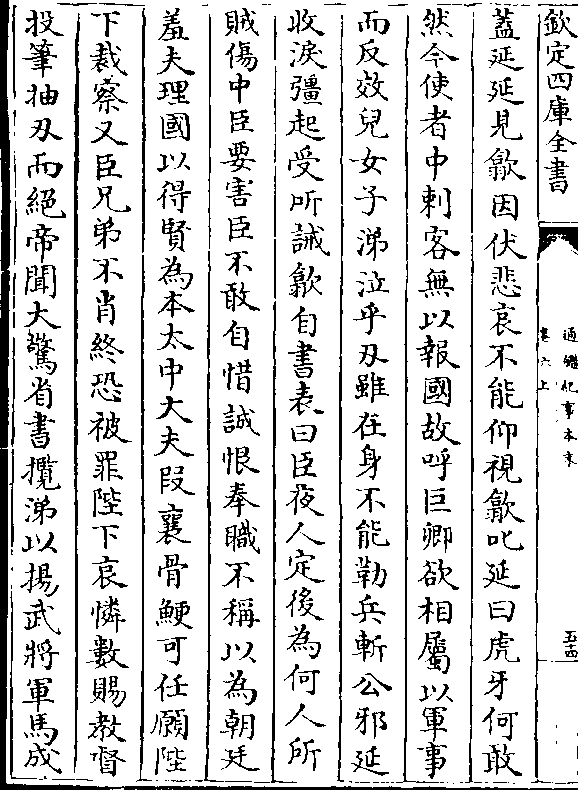 欽定四庫全書
通鑑紀事本末
卷六上
五十四
蓋延延見歙因伏悲哀不能仰視歙叱延曰虎牙何敢
然今使者中刺客無以報國故呼巨卿欲相屬以軍事
而反效兒女子涕泣乎刄雖在身不能勒兵斬公邪延
收淚彊起受所誡歙自書表曰臣夜人定後為何人所
賊傷中臣要害臣不敢自惜誠恨奉職不稱以為朝廷
羞夫理國以得賢為本太中大夫叚襄骨鯁可任願陛
下裁察又臣兄弟不肖終恐被罪陛下哀憐數賜教督
投筆抽刄而絕帝聞大驚省書攬涕以揚武將軍馬成